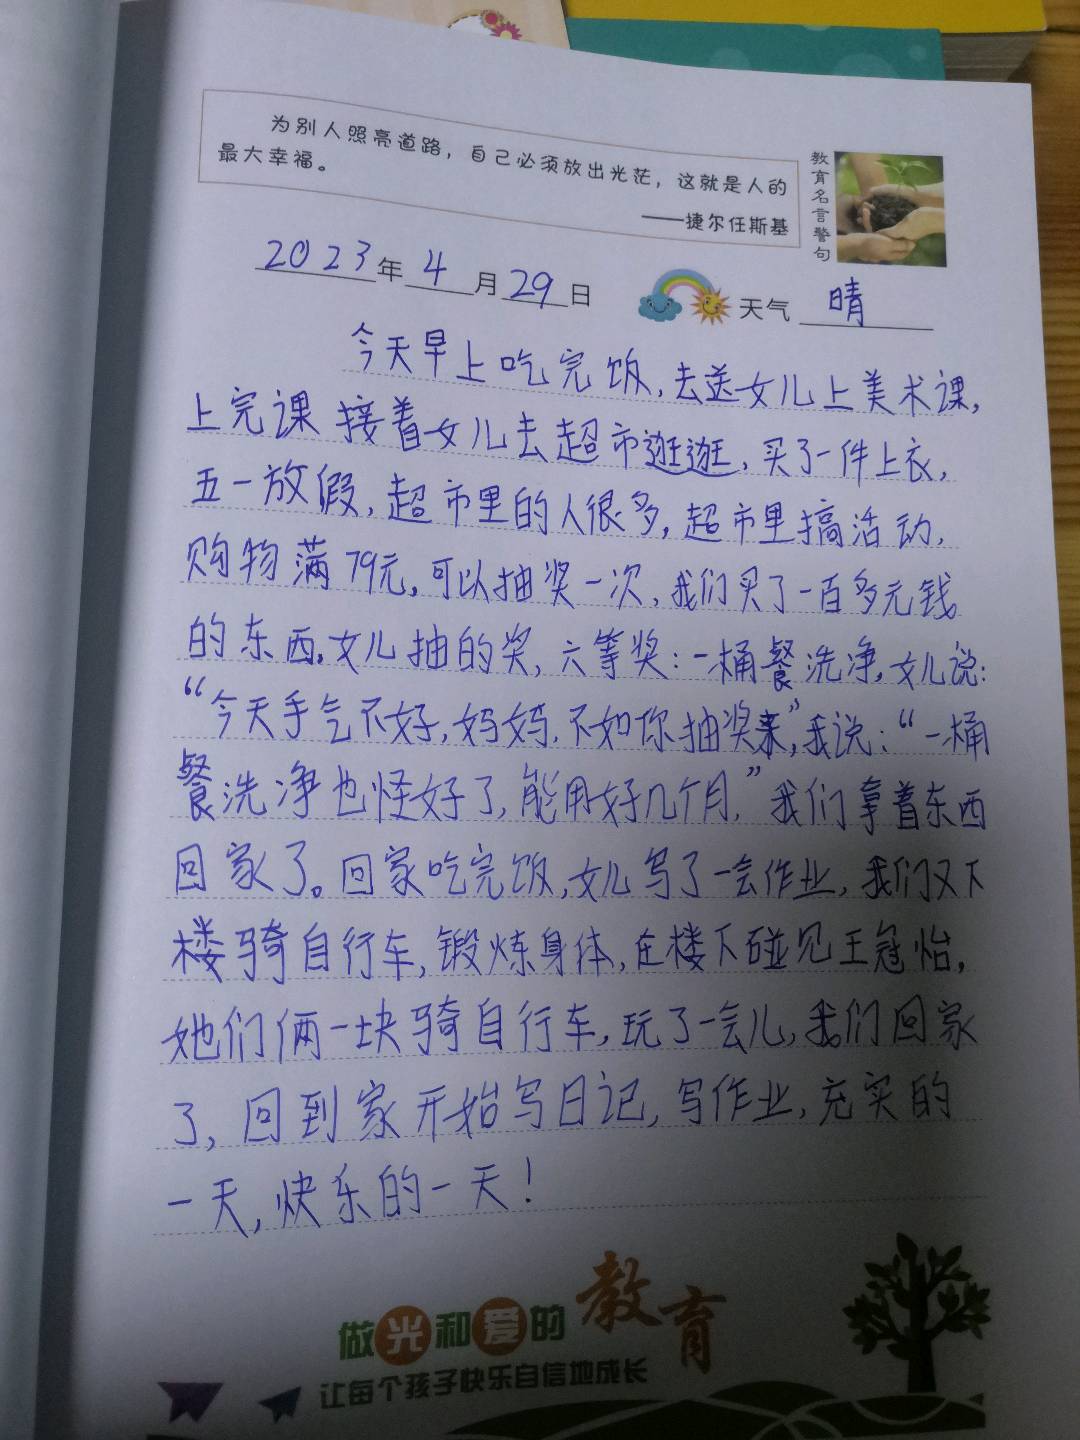 为别人照亮道路，自己必须放出光茫，这就是人的
最大幸福。
——捷尔任斯基
教育名言警句
2023年4月29日 天气 晴
今天早上吃完饭，去送女儿上美术课，
上完课接着女儿去超市逛逛，买了一件上衣，
五一放假，超市里的人很多，超市里搞活动，
购物满79元，可以抽奖一次，我们买了一百多元钱
的东西。女儿抽的奖，六等奖：一桶餐洗净，女儿说：
“今天手气不好，妈妈，不如你抽奖来”，我说：“一桶
餐洗净也怪好了，能用好几个月，”我们拿着东西
回家了。回家吃完饭，女儿写了一会作业，我们又下
楼骑自行车，锻炼身体，在楼下碰见王冠怡，
她们俩一块骑自行车，玩了一会儿，我们回家
了，回到家开始写日记，写作业，充实的
一天，快乐的一天！
做光和爱的教育
让每个孩子快乐自信地成长